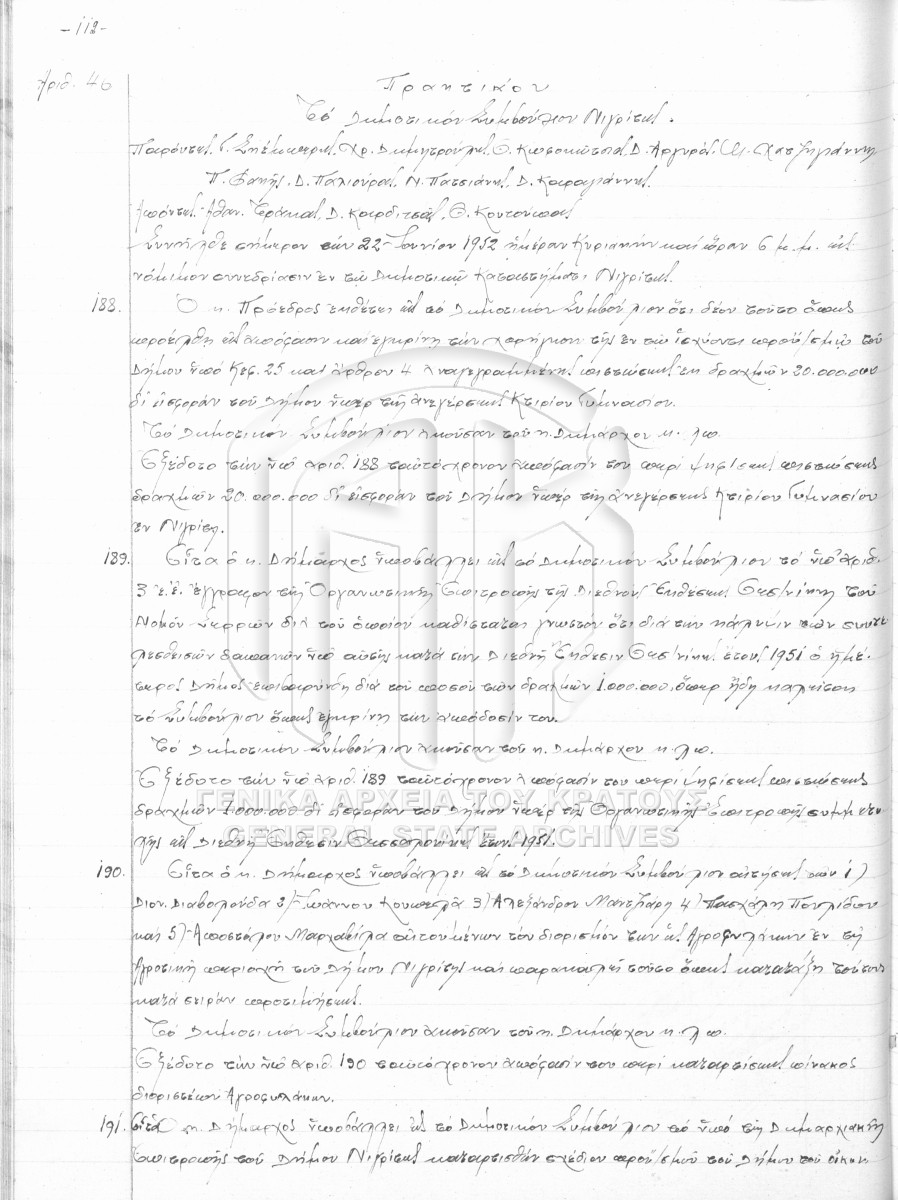 -112-
Αριθ. 46
Πρακτικόν
Τό Δημοτικόν Συμβούλιον Νιγρίτης.
Παρόντες Χρ. Δημητρούλης, Θ. Δ. Αργυρός, Χατζηγιάννης
Π. Φακής, Δ. Παλιούρας, Ν. Πατσιάνης, Δ. Καραγιάννης
Απόντες Αθαν. Δ. Καρδιτσάς, Θ. Κουτούπας
Συνήλθε σήμερον τήν 22 Ιουνίου 1952 ημέραν Κυριακήν καί ώραν 6 μ.μ. είς
νόμιμον συνεδρίασιν εν τώ Δημοτικώ Καταστήματι Νιγρίτης.
188. Ο κ. Πρόεδρος εκθέτει είς τό Δημοτικόν Συμβούλιον ότι δέον τούτο όπως
προέλθη είς απόφασιν καί εγκρίνη τήν χορήγησιν τής εν τώ ισχύοντι προϋ/σμώ τού
Δήμου υπό Κεφ. 25 καί άρθρον 4 αναγεγραμμένης πιστώσεως εκ δραχμών 20.000.000
δι' εισφοράν τού Δήμου υπέρ τής ανεγέρσεως Κτιρίου Γυμνασίου.
Τό Δημοτικόν Συμβούλιον ακούσαν τού κ. Δημάρχου κ.λ.π.
Εξέδοτο τήν υπ' αριθ. 188 ταυτόχρονον απόφασίν του περί ψηφίσεως πιστώσεως
δραχμών 20.000.000 δι' εισφοράν τού Δήμου υπέρ τής ανεγέρσεως Κτιρίου Γυμνασίου
εν Νιγρίτη.
189. Είτα ό κ. Δήμαρχος υποβάλλει είς τό Δημοτικόν Συμβούλιον τό υπ' αριθ.
3 ε.έ. έγγραφον τής Οργανωτικής Επιτροπής τής Διεθνούς Εκθέσεως Θεσ/νίκης τού
Νομού Σερρών διά τού οποίου καθίσταται γνωστόν ότι διά τήν κάλυψιν τών συντε
λεσθεισών δαπανών υπ' αυτής κατά τήν Διεθνή Έκθεσιν Θεσ/νίκης έτους 1951 ό ημέ-
τερος Δήμος επιβαρύνθη διά τού ποσού τών δραχμών 1.000.000, όπερ ήδη καλείται
τό Συμβούλιον όπως εγκρίνη τήν απόδοσίν του.
Τό Δημοτικόν Συμβούλιον ακούσαν τού κ. Δημάρχου κ.λ.π.
Εξέδοτο τήν υπ' αριθ. 189 ταυτόχρονον απόφασίν του περί ψηφίσεως πιστώσεως
δραχμών 1.000.000 δι' εισφοράν τού Δήμου υπέρ τής Οργανωτικής Επιτροπής συμμετο
χής είς Διεθνή Έκθεσιν Θεσσαλονίκης έτους 1951.
190. Είτα ό κ. Δήμαρχος υποβάλλει είς τό Δημοτικόν Συμβούλιον αιτήσεις τών 1)
Διον. Διαβολούδα 2) Ιωάννου Κουπελά 3) Αλεξάνδρου Μαντζιάρη 4) Πασχάλη Παυλίδου
καί 5) Αποστόλου Μαρχαβίλα αιτουμένων τόν διορισμόν των ώς Αγροφυλάκων εν τή
Αγροτική περιοχή τού Δήμου Νιγρίτης καί παρακαλεί τούτο όπως κατατάξη τούτους
κατά σειράν προτιμήσεως.
Τό Δημοτικόν Συμβούλιον ακούσαν τού κ. Δημάρχου κ.λ.π.
Εξέδοτο τήν υπ' αριθ. 190 ταυτόχρονον απόφασίν του περί καταρτίσεως πίνακος
διοριστέων Αγροφυλάκων.
191. Είτα ό κ. Δήμαρχος υποβάλλει είς τό Δημοτικόν Συμβούλιον τό υπό τής Δημαρχιακής
Επιτροπής τού Δήμου Νιγρίτης καταρτισθέν σχέδιον προϋ/σμού τού Δήμου τού οικον
ΓΕΝΙΚΑ ΑΡΧΕΙΑ ΤΟΥ ΚΡΑΤΟΥΣ
GENERAL STATE ARCHIVES